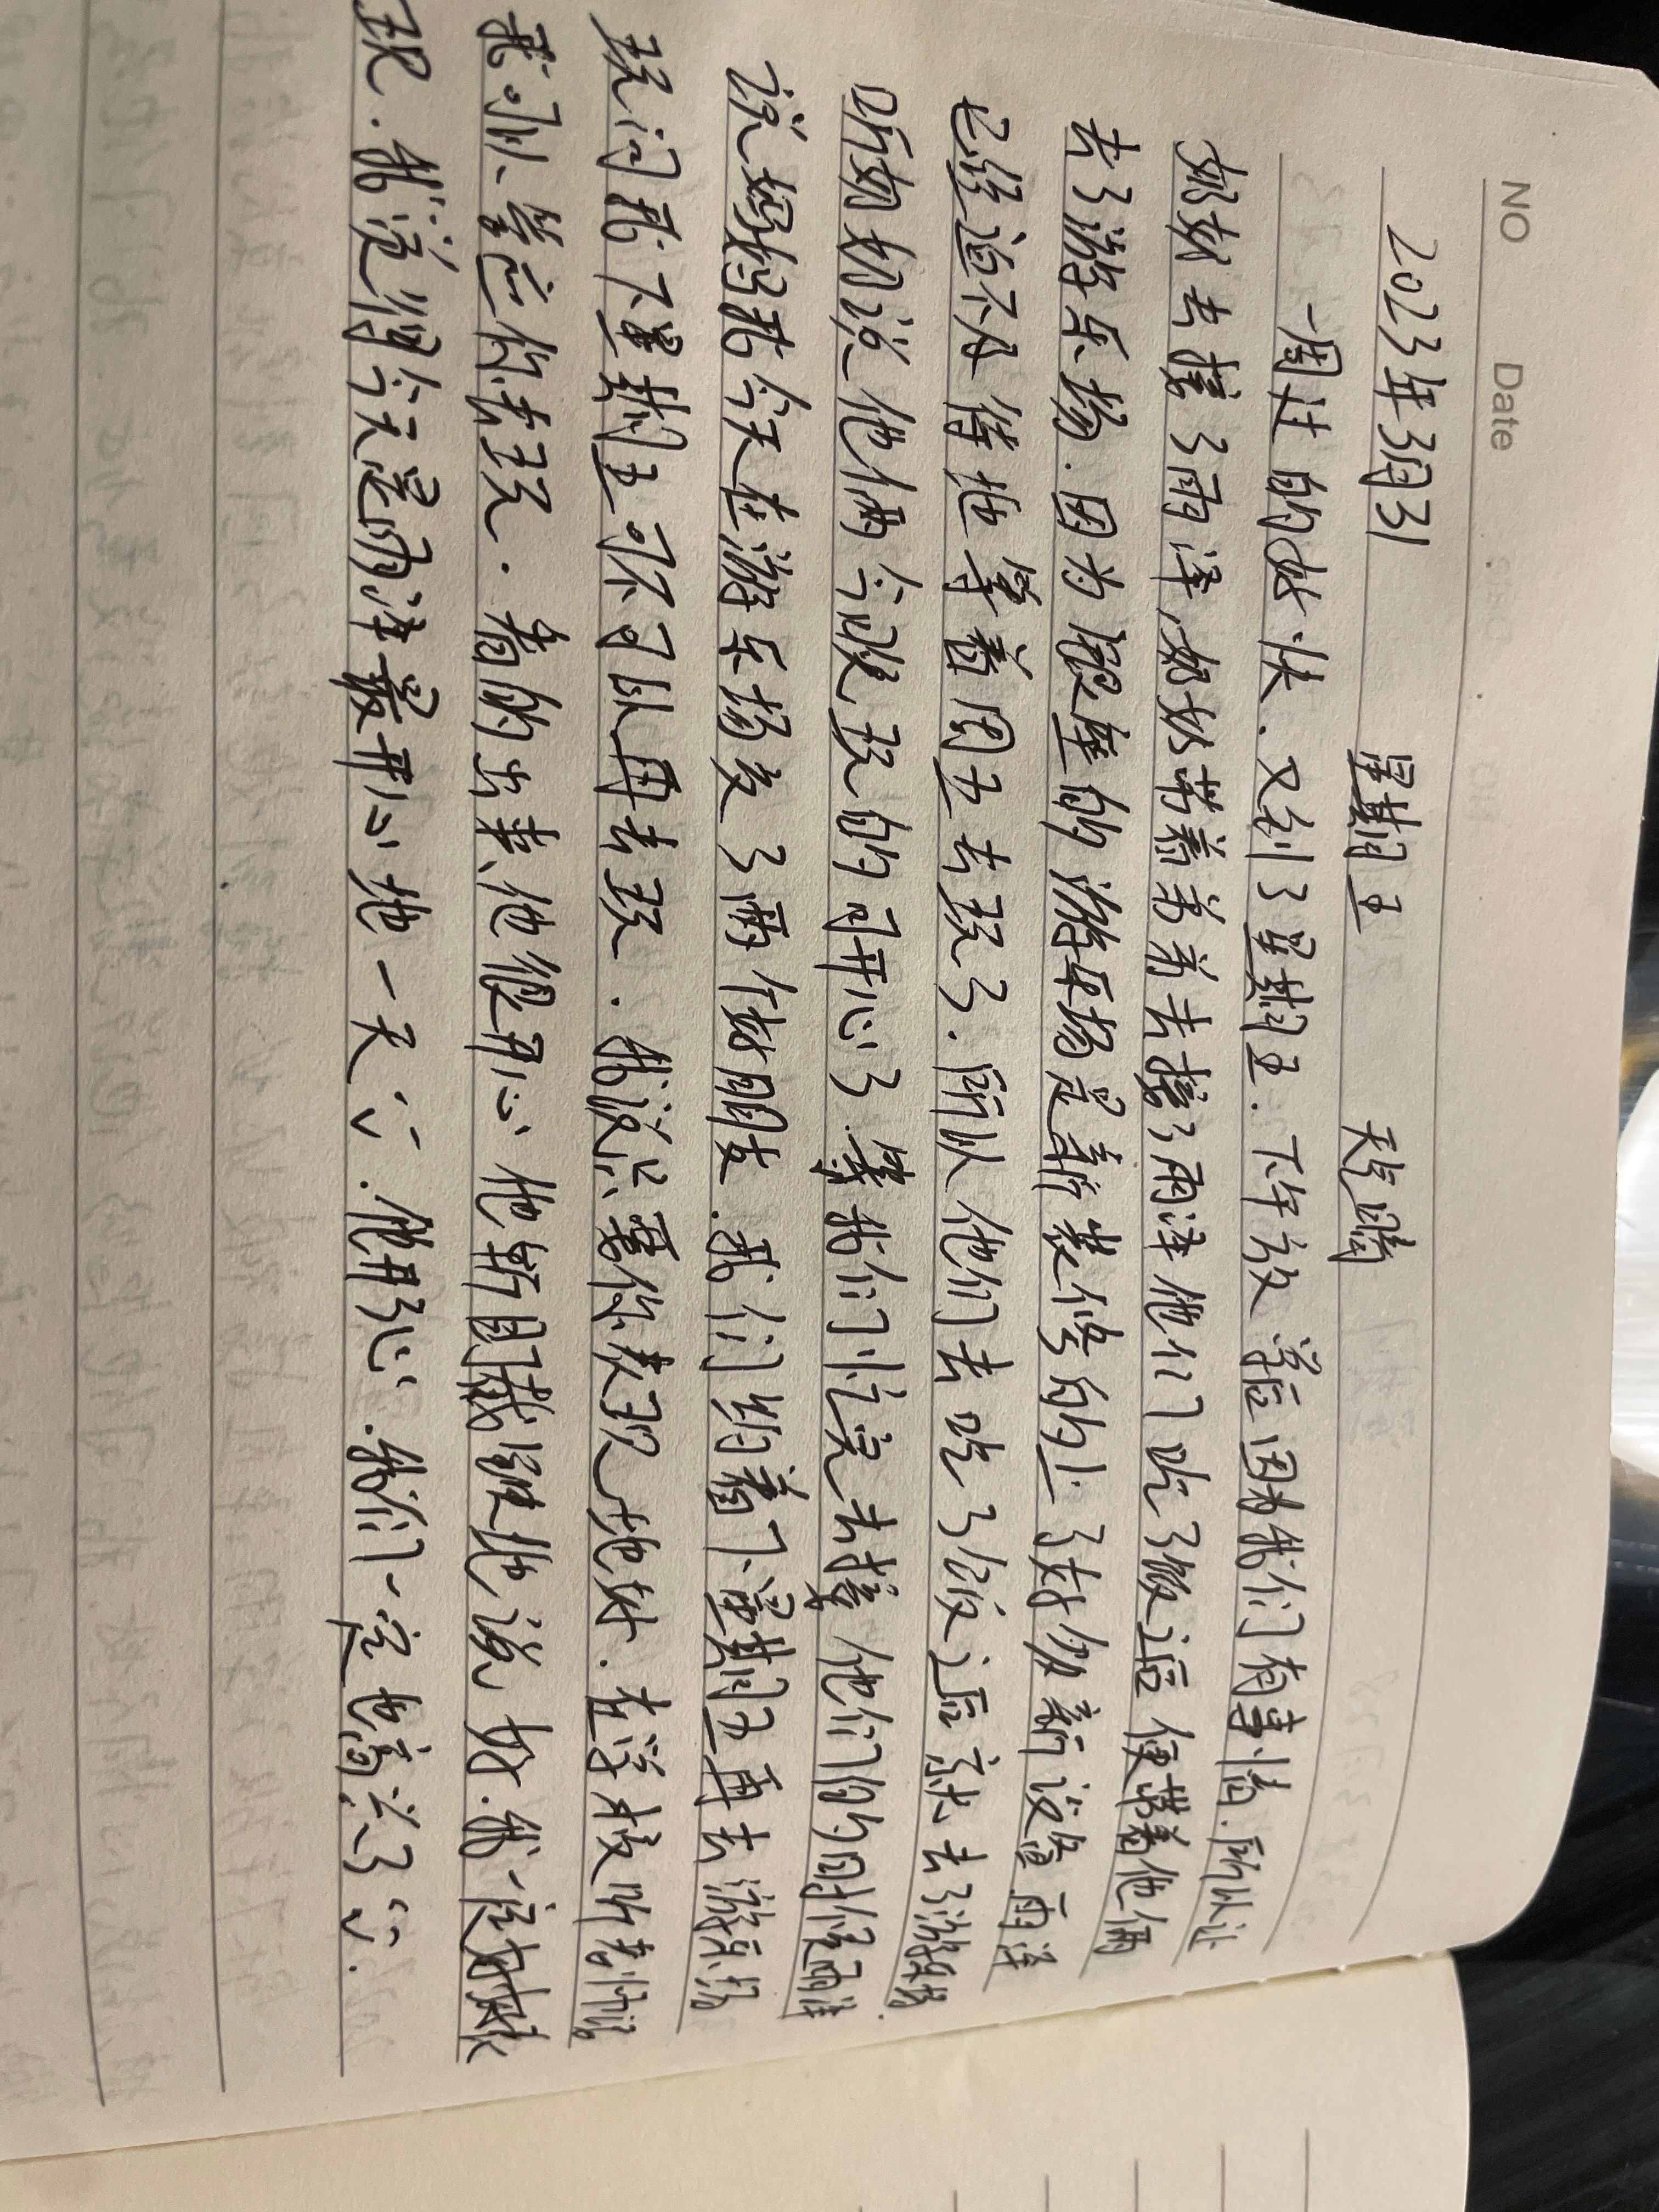 NO Date
2023年3月31 星期五 天气晴
一周过的好快.又到了星期五.下午放学后因为我们有事情.所以让
奶奶去接了雨泽,奶奶带着弟弟去接了雨泽他们吃了饭后便带着他俩
去了游乐场.因为银座的游乐场是新装修的上了好多新设备雨泽
已经迫不及待地等着周五去玩了.所以他们去吃了饭后就去了游乐场
听奶奶说他俩今晚玩的可开心了.等我们忙完去接他们的时候雨泽
说妈妈我今天在游乐场交了两个好朋友.我们约着下星期五再去游乐场
玩问我下星期五可不可以再去玩.我说只要你表现地好.在学校听老师话
我可以答应你去玩.看的出来他很开心他斩目截铁地说好.我一定好好表
现.我觉得今天是雨泽最开心地一天.他开心.我们一定也高兴了.